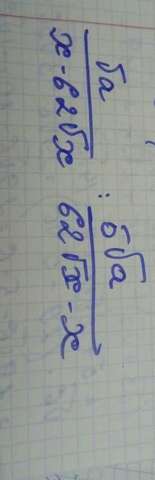 √a / x - 62√x : 5√a / 62√x - x